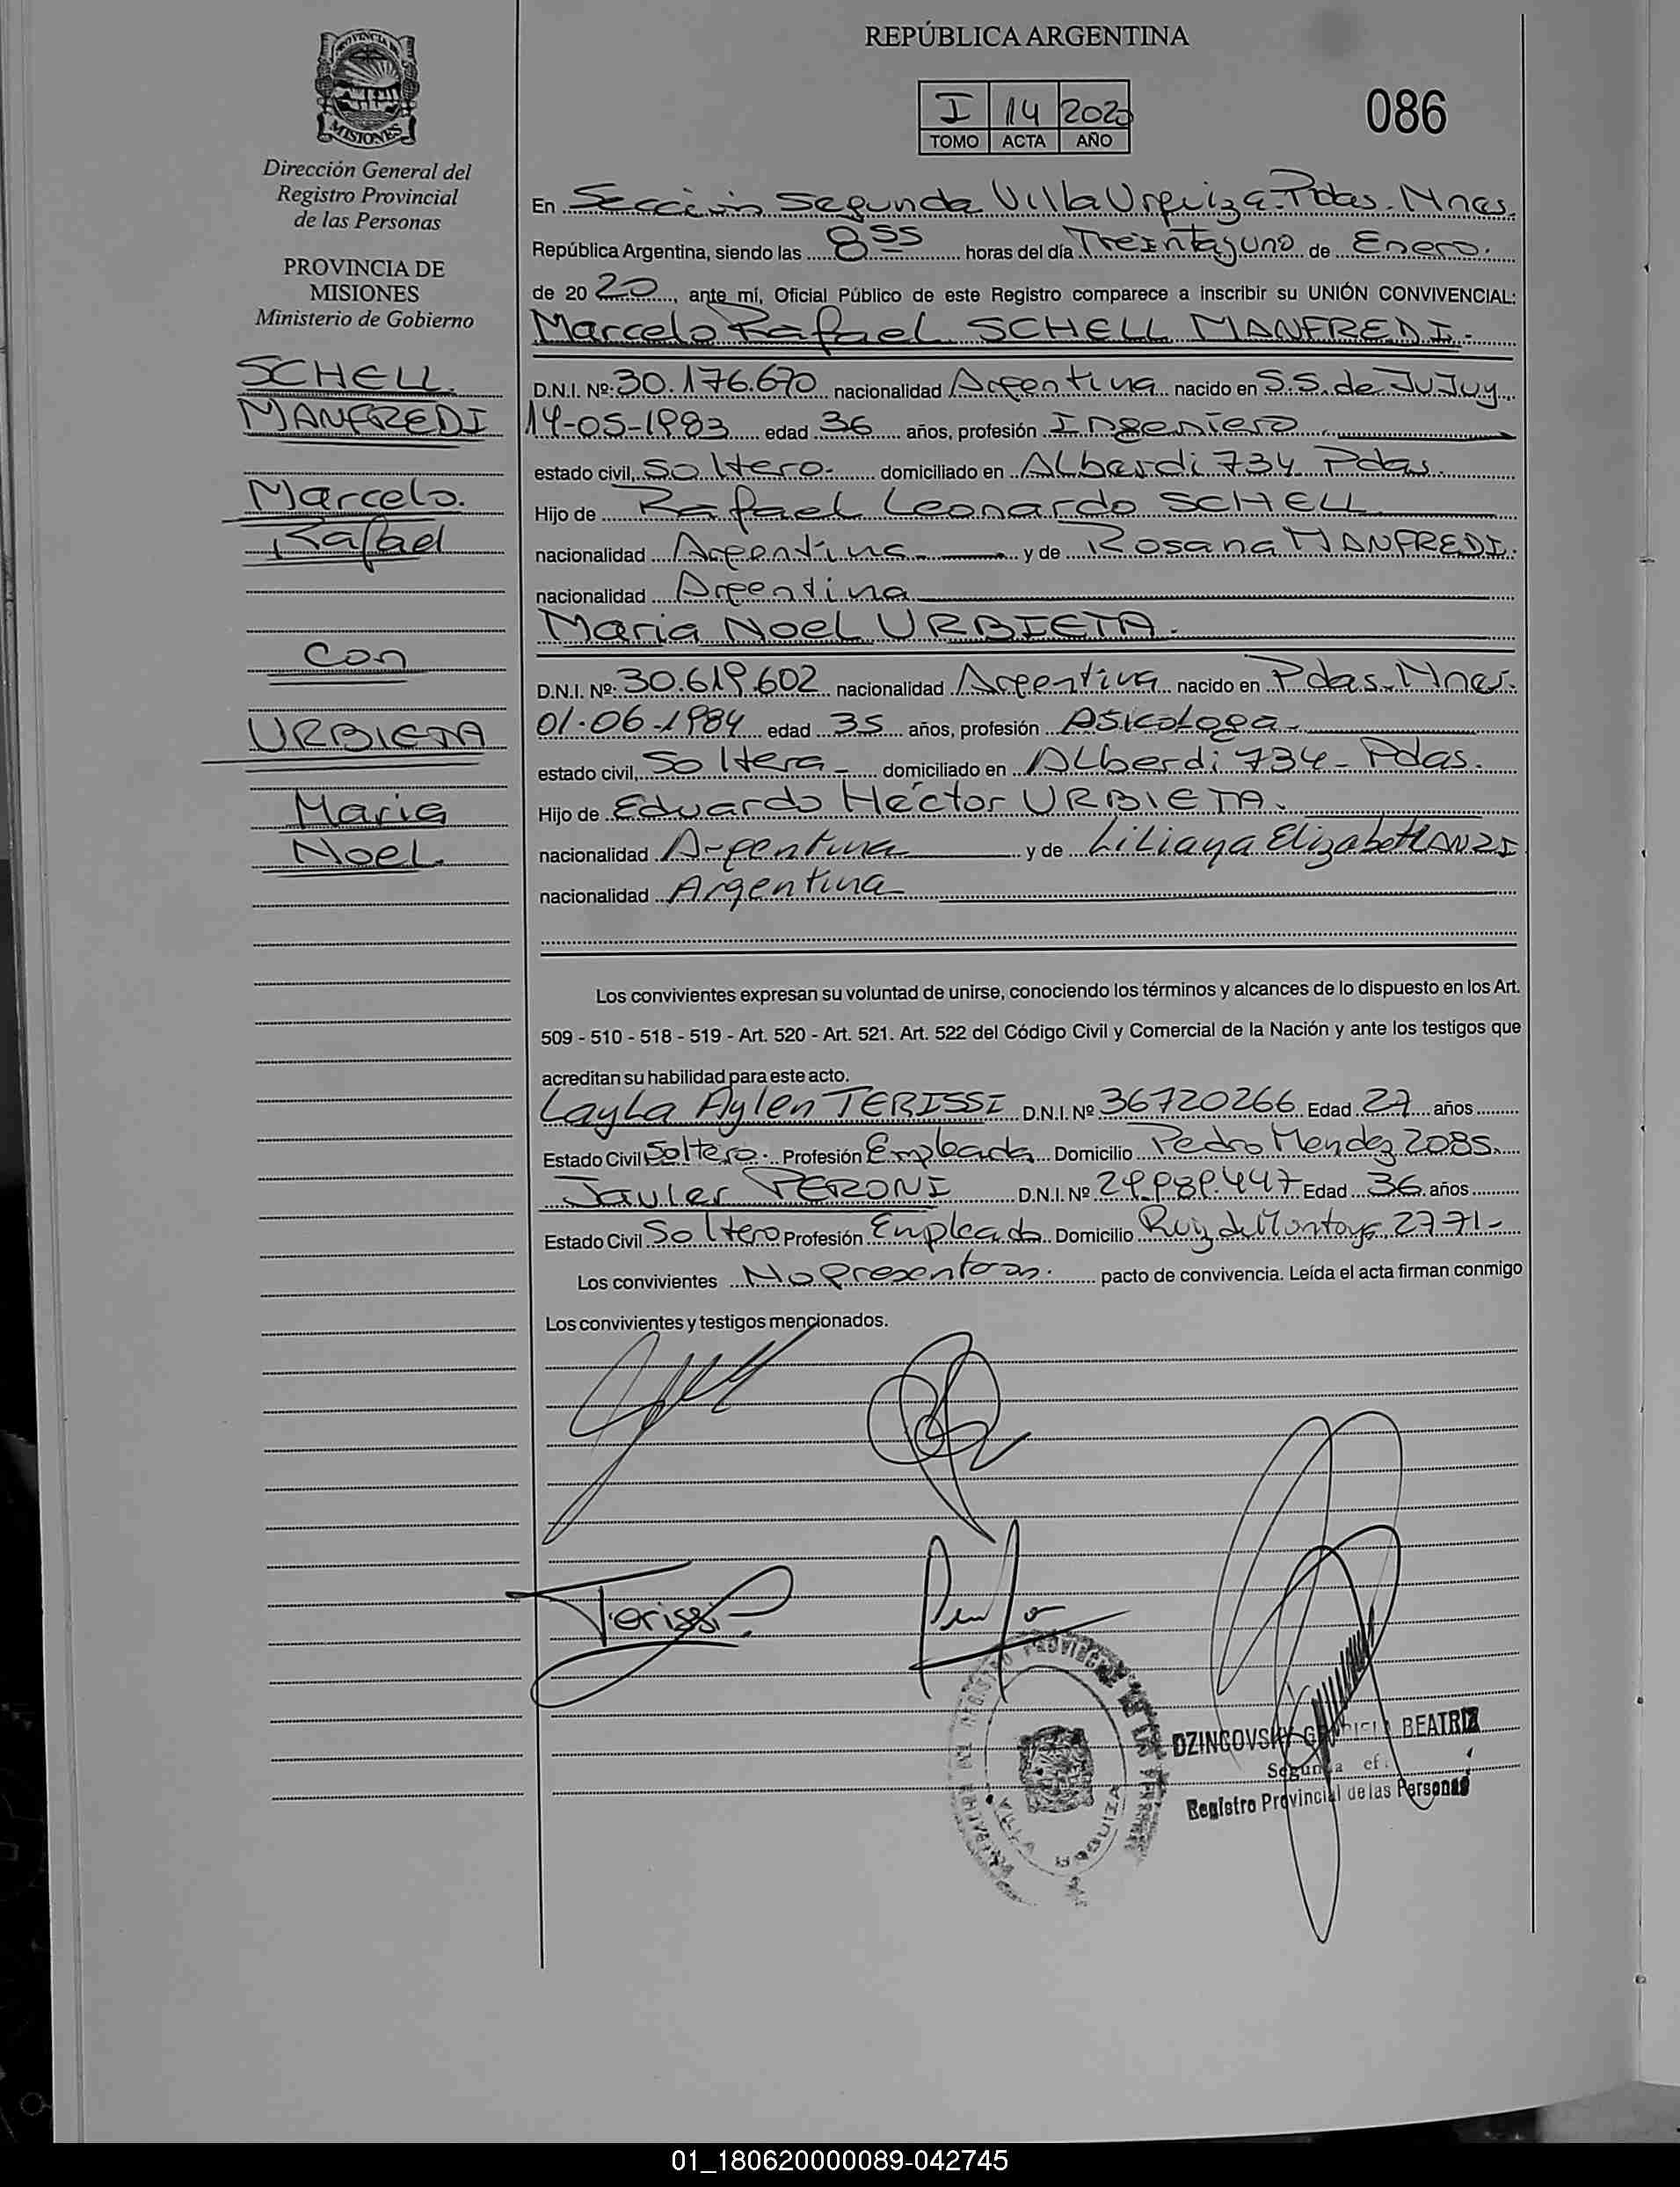 PROVINCIA DE
MISIONES
Dirección General del
Registro Provincial
de las Personas
PROVINCIA DE
MISIONES
Ministerio de Gobierno
SCHELL
MANFREDI
Marcelo.
Rafael
Con
URBIETA
Maria
Noel.
REPÚBLICA ARGENTINA
I 14 2020
TOMO ACTA AÑO
086
En Sección Segunda Villa Urquiza-Pdas. Mnes.
República Argentina, siendo las 8 55 horas del día Treintayuno de Enero.
de 20 20, ante mí, Oficial Público de este Registro comparece a inscribir su UNIÓN CONVIVENCIAL:
Marcelo Rafael SCHELL MANFREDI.
D.N.I. Nº: 30.176.670 nacionalidad Argentina nacido en S.S. de JuJuy
14-05-1983 edad 36 años, profesión Ingeniero
estado civil, Soltero.- domiciliado en ALberdi 734 Pdas.
Hijo de Rafael Leonardo SCHELL
nacionalidad Argentina y de Rosana MANFREDI.
nacionalidad Argentina
Maria Noel URBIETA.
D.N.I. Nº: 30.619.602 nacionalidad Argentina nacido en Pdas. Mnes.
01-06-1984 edad 35 años, profesión Psicologa
estado civil, Soltera - domiciliado en ALberdi 734 - Pdas.
Hijo de Eduardo Héctor URBIETA.
nacionalidad Argentina y de Liliana Elizabeth
nacionalidad Argentina
Los convivientes expresan su voluntad de unirse, conociendo los términos y alcances de lo dispuesto en los Art.
509 - 510 - 518 - 519 - Art. 520 - Art. 521. Art. 522 del Código Civil y Comercial de la Nación y ante los testigos que
acreditan su habilidad para este acto.
Layla Aylen TERISSI D.N.I. Nº 36720266 Edad 27 años
Estado Civil Soltero Profesión Empleada Domicilio Pedro Mendez 2085
Javier PERONI D.N.I. Nº 29.989.447 Edad 36 años
Estado Civil Soltero Profesión Empleado Domicilio Ruiz de Montoya 2771-
Los convivientes No Presentaron. pacto de convivencia. Leída el acta firman conmigo
Los convivientes y testigos mencionados.
Terissi
VILLA URQUIZA
DZINGOVSKY GABRIELA BEATRIZ
Segunda
Registro Provincial de las Personas
01_180620000089-042745